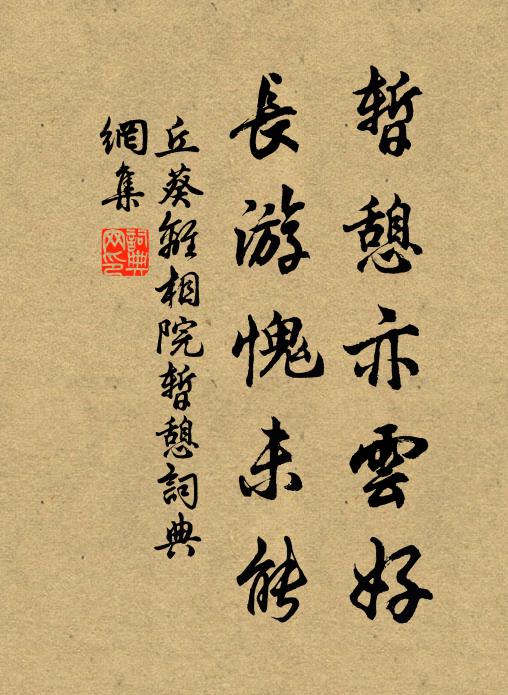 暫憩亦雲好
長游愧未能
丘葵離相院暫憩詞典
網集
詞典網印